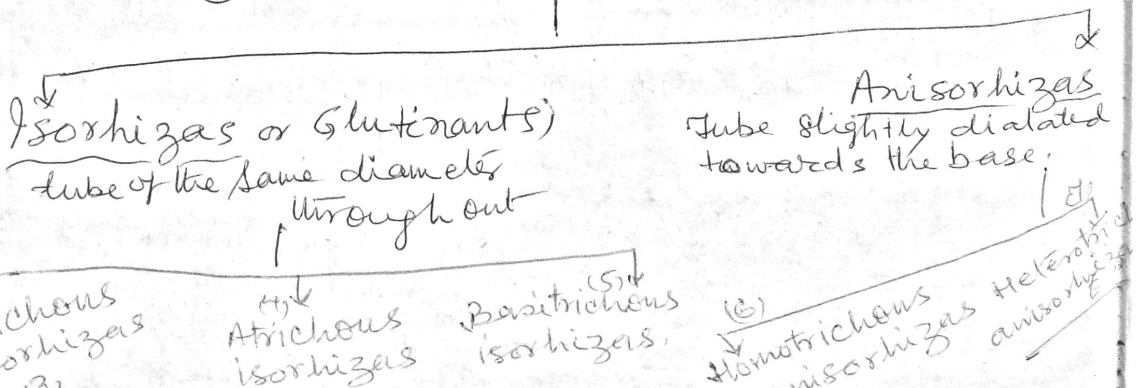 Isorhizas or Glutinants)
tube of the same diameter
through out
Anisorhizas
Tube slightly dialated
towards the base.
ichous
orhizas
(4)
Atrichous
isorhizas
(5)
Basitrichous
isorhizas.
(6)
Homotrichous
nisorhizas
Heterotric
anisorhiza